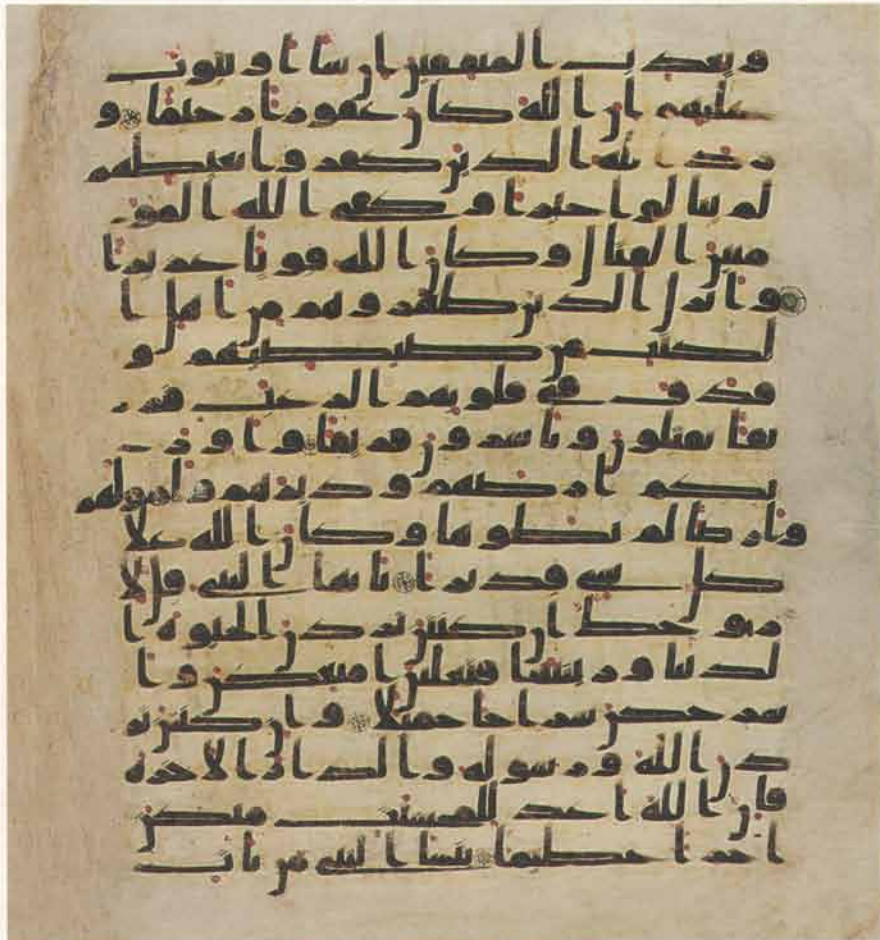 ويعذب المنفقين ان شا او يتوب
عليهم ان الله كان غفورا رحيما و
رد الله الذين كفروا بغيظهم
لم ينالوا خيرا وكفى الله المو
منين القتال وكان الله قويا عزيزا
وانزل الذين ظهروهم من اهل ا
لكتب من صيصيهم و
قذف في قلوبهم الرعب فر
يقا تقتلون وتاسرون فريقا واور
ثكم ارضهم وديرهم وامولهم
وارضا لم تطوها وكان الله علا
كل شي قديرا يايها النبي قل لا
زوجك ان كنتن تردن الحيوة ا
لدنيا وزينتها فتعلين امتعكن وا
سرحكن سراحا جميلا وان كنتن تر
دن الله ورسوله والدار الاخرة
فان الله اعد للمحسنت منكن
اجرا عظيما ينسا النبي من يات